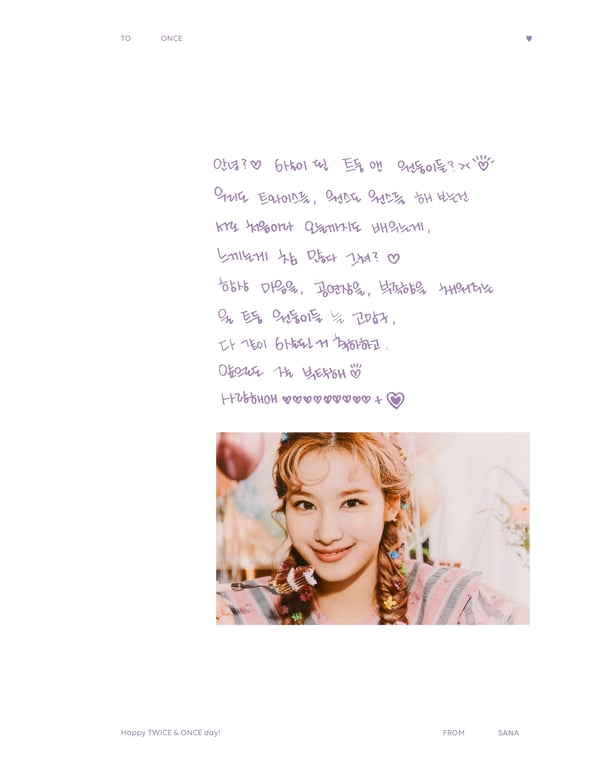 TO ONCE ♥
안녕?♡ 6살이 된 트둥 앤 원둥이들?><
우리도 트와이스를, 원스도 원스를 해 보는건
서로 처음이라 오늘까지도 배우는게,
느끼는게 참 많다 그쳐? ♡
항상 마음을, 공연장을, 부족함을 채워주는
울 트둥 원둥이들 늘 고맙구,
다 같이 6살된 거 축하하고.
앞으로도 잘 부탁해
사랑해애 ♡♡♡♡♡♡♡♡♡ +
Happy TWICE & ONCE day! FROM SANA